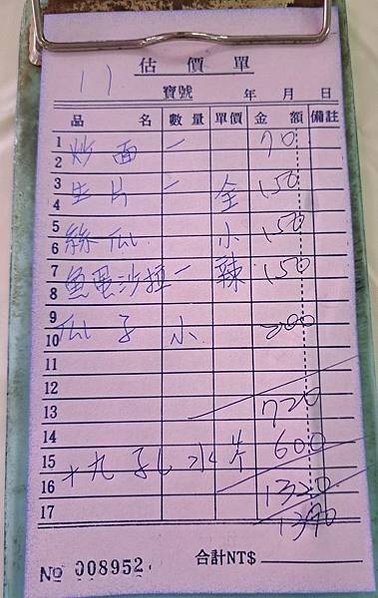 11
估價單
寶號 年 月 日
品名 數量 單價 金額 備註
1
2 炒面 一 70
3
4 生片 一 全 150
5
6 絲瓜 小 150
7
8 魚蛋沙拉 一 辣 150
9
10 瓜子 小 200
11
12
13 720
14
15 十九 水 600
16 1320
17 1390
No 008952
合計NT$